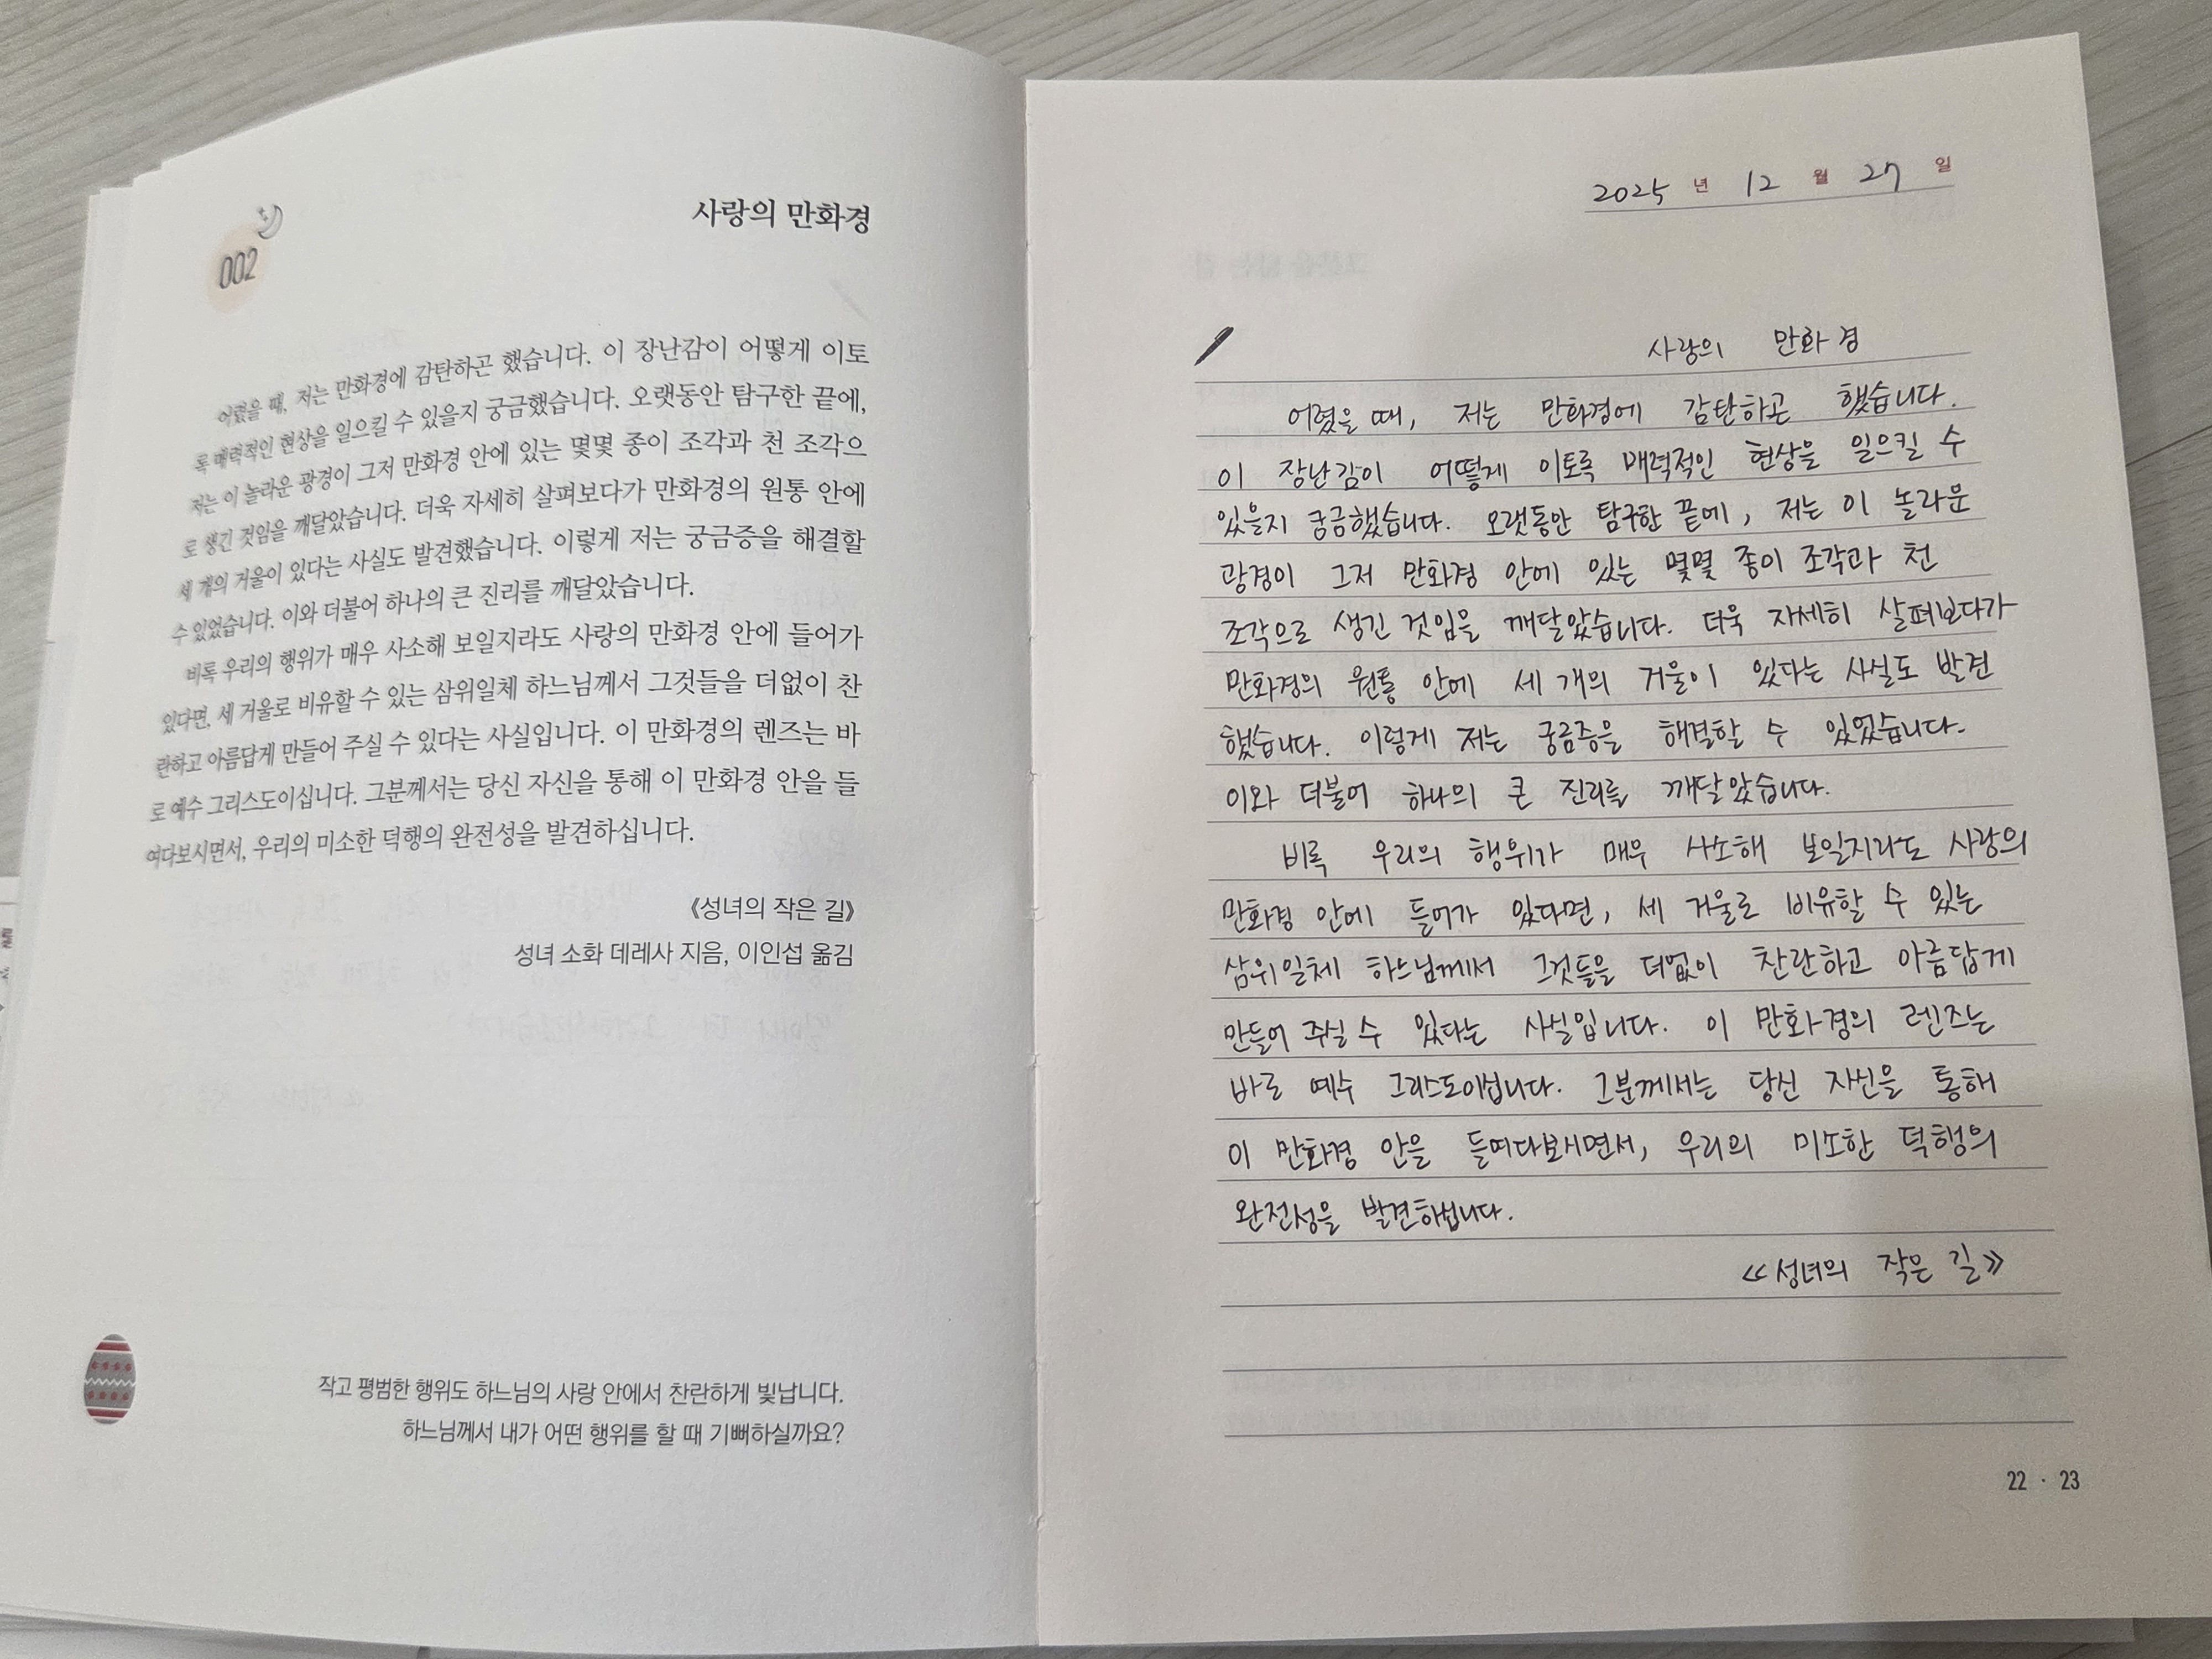 002
사랑의 만화경
어렸을 때, 저는 만화경에 감탄하곤 했습니다. 이 장난감이 어떻게 이토
록 매력적인 현상을 일으킬 수 있을지 궁금했습니다. 오랫동안 탐구한 끝에,
저는 이 놀라운 광경이 그저 만화경 안에 있는 몇몇 종이 조각과 천 조각으
로 생긴 것임을 깨달았습니다. 더욱 자세히 살펴보다가 만화경의 원통 안에
세 개의 거울이 있다는 사실도 발견했습니다. 이렇게 저는 궁금증을 해결할
수 있었습니다. 이와 더불어 하나의 큰 진리를 깨달았습니다.
비록 우리의 행위가 매우 사소해 보일지라도 사랑의 만화경 안에 들어가
있다면, 세 거울로 비유할 수 있는 삼위일체 하느님께서 그것들을 더없이 찬
란하고 아름답게 만들어 주실 수 있다는 사실입니다. 이 만화경의 렌즈는 바
로 예수 그리스도이십니다. 그분께서는 당신 자신을 통해 이 만화경 안을 들
여다보시면서, 우리의 미소한 덕행의 완전성을 발견하십니다.
《성녀의 작은 길》
성녀 소화 데레사 지음, 이인섭 옮김
작고 평범한 행위도 하느님의 사랑 안에서 찬란하게 빛납니다.
하느님께서 내가 어떤 행위를 할 때 기뻐하실까요?
2025 년 12 월 27 일
사랑의 만화경
어렸을 때, 저는 만화경에 감탄하곤 했습니다.
이 장난감이 어떻게 이토록 매력적인 현상을 일으킬 수
있을지 궁금했습니다. 오랫동안 탐구한 끝에, 저는 이 놀라운
광경이 그저 만화경 안에 있는 몇몇 종이 조각과 천
조각으로 생긴 것임을 깨달았습니다. 더욱 자세히 살펴보다가
만화경의 원통 안에 세 개의 거울이 있다는 사실도 발견
했습니다. 이렇게 저는 궁금증을 해결할 수 있었습니다.
이와 더불어 하나의 큰 진리를 깨달았습니다.
비록 우리의 행위가 매우 사소해 보일지라도 사랑의
만화경 안에 들어가 있다면, 세 거울로 비유할 수 있는
삼위일체 하느님께서 그것들을 더없이 찬란하고 아름답게
만들어 주실 수 있다는 사실입니다. 이 만화경의 렌즈는
바로 예수 그리스도이십니다. 그분께서는 당신 자신을 통해
이 만화경 안을 들여다보시면서, 우리의 미소한 덕행의
완전성을 발견하십니다.
《성녀의 작은 길》
22 · 23